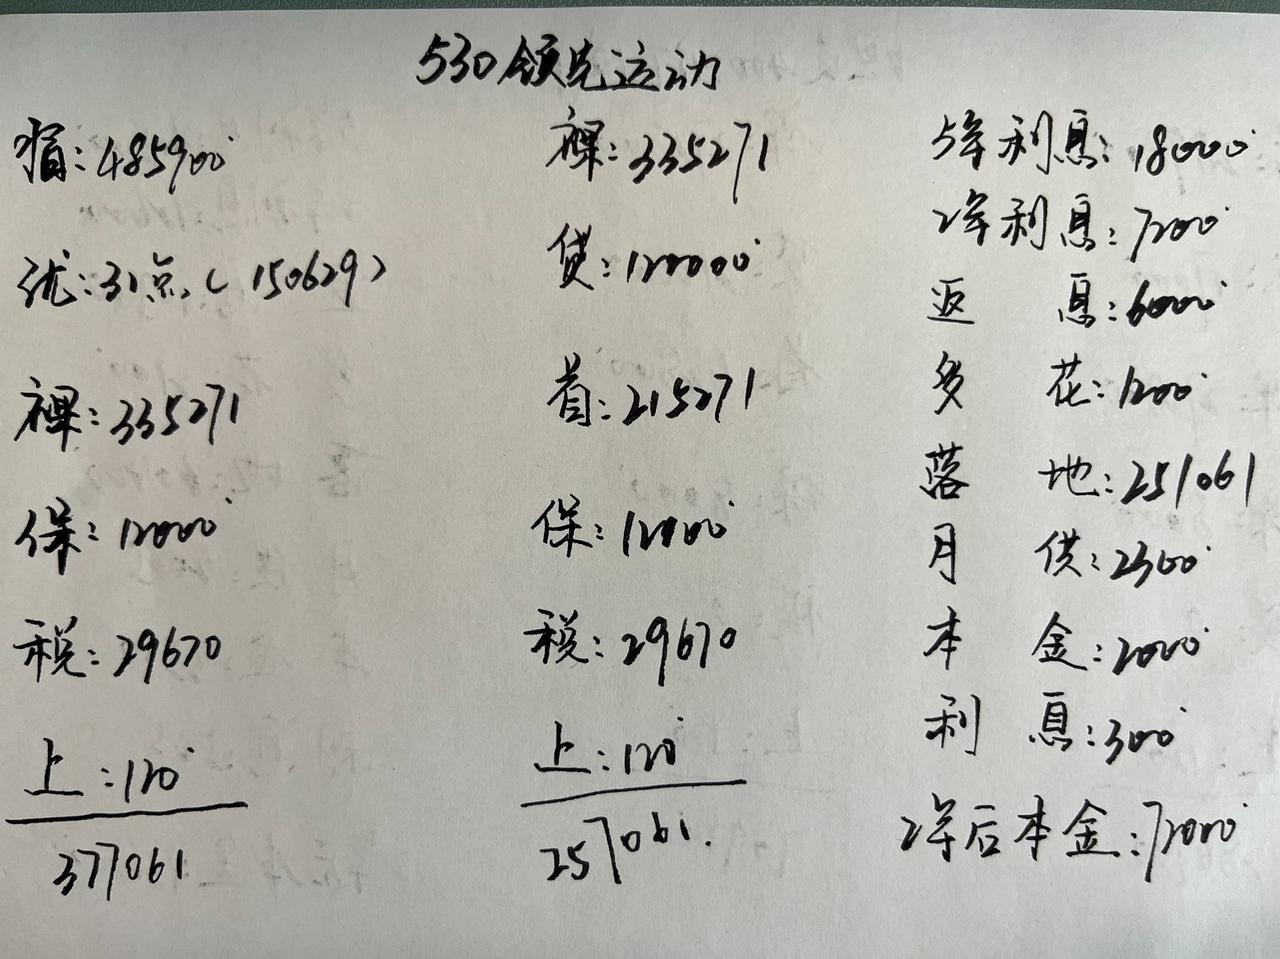 530领先运动
指:485900
优:31点(150629)
裸:335271
保:12000
税:29670
上:120
377061
裸:335271
贷:120000
首:215271
保:12000
税:29670
上:120
257061.
5年利息:18000
2年利息:7200
返息:6000
多花:1200
落地:251061
月供:2300
本金:2000
利息:300
2年后本金:72000